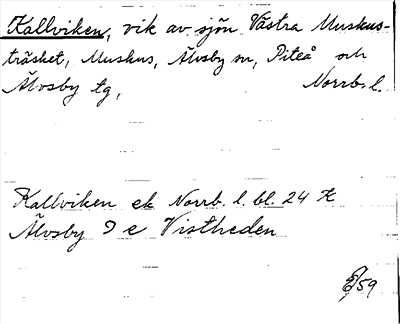 Kallviken, vik av sjön Västra Muskus-
träsket, Muskus, Älvsby sn, Piteå och
Älvsby tg, Norrb. l.
Kallviken ek Norrb. l. bl. 24 K
Älvsby 9 e Vistheden
/59